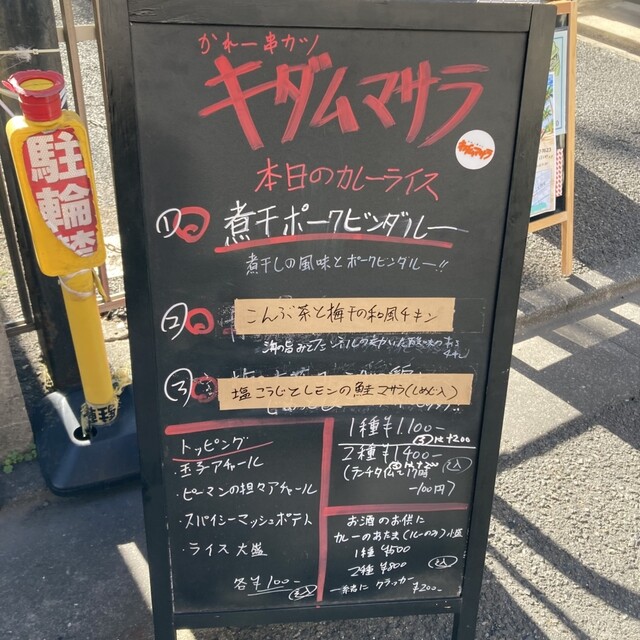 かれー串カツ
キダムマサラ
キダムマサラ
本日のカレーライス
① 煮干ポークビンダルー
煮干しの風味とポークビンダルー!!
② こんぶ茶と梅干の和風チキン
③ 塩こうじとレモンの鮭マサラ(しめじ入)
1種 ¥1,100-
③は+200
2種 ¥1400-
③は+200
(ランチタイム〜17時
-100円)
トッピング
・玉子アチャール
・ピーマンの担々アチャール
・スパイシーマッシュポテト
・ライス 大盛
各¥100-
お酒のお供に
カレーのあたま(ルーのみ)小盛
1種 ¥500
2種 ¥800
一緒に クラッカー ¥200-
駐輪禁